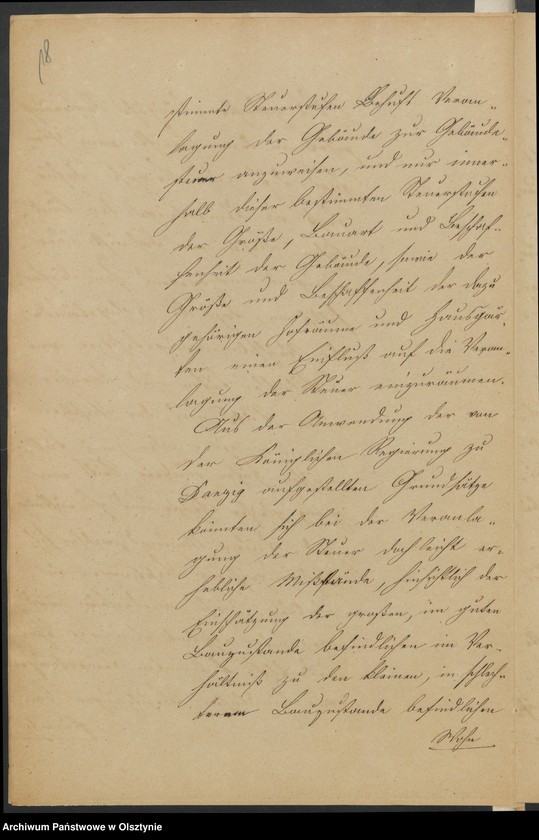 18
stimmte Steuerstufen Behufs Veran-
lagung der Gebäude zur Gebäude-
steuer anzuweisen, und nur inner-
halb dieser bestimmten Steuerstufen
der Größe, Bauart und Beschaf-
fenheit der Gebäude, sowie der
Größe und Beschaffenheit der dazu
gehörigen Hofräume und Hausgär-
ten einen Einfluß auf die Veran-
lagung der Steuer einzuräumen.
Aus der Anwendung der von
der Königlichen Regierung zu
Danzig aufgestellten Grundsätze
könnten sich bei der Veranla-
gung der Steuer doch leicht er-
hebliche Mißstände, hinsichtlich der
Einschätzung der großen, im guten
Bauzustande befindlichen im Ver-
hältniß zu den kleinen, in schlech-
terem Bauzustande befindlichen
Wohn
Archiwum Państwowe w Olsztynie